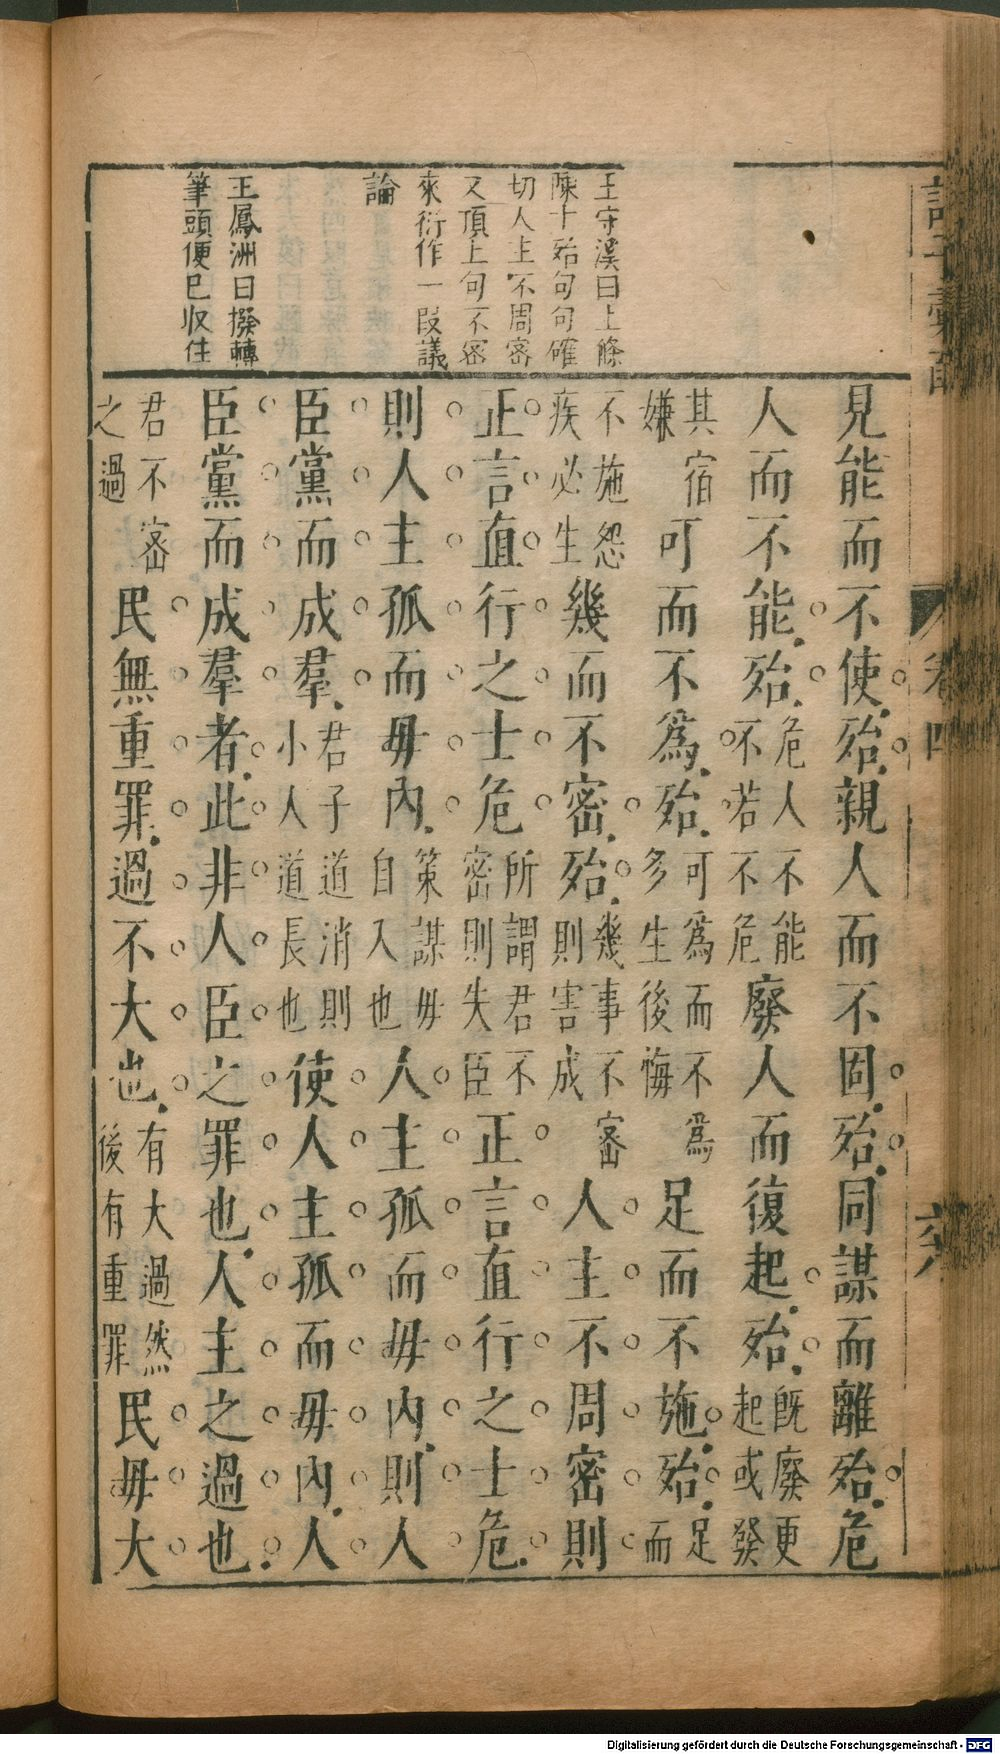 王守溪曰上條
陳十殆句句確
切人主不周密
又頂上句不密
來衍作一段議
論
王鳳洲曰撥轉
筆頭便已収住
見能而不使殆親人而不固殆同謀而離殆危
人而不能殆危人不能不若不危廢人而復起殆旣廢更起或發
其宿嫌可而不爲殆可爲而不爲多生後悔足而不施殆足而
不施怨疾必生幾而不密殆幾事不密則害成人主不周密則
正言直行之士危所謂君不密則失臣正言直行之士危
則人主孤而毋內策謀毋自入也人主孤而毋內則人
臣黨而成羣君子道消則小人道長也使人主孤而毋內人
臣黨而成羣者此非人臣之罪也人主之過也
君不密之過民無重罪過不大也有大過然後有重罪民毋大
卷四
六八
Digitalisierung gefördert durch die Deutsche Forschungsgemeinschaft - DFG